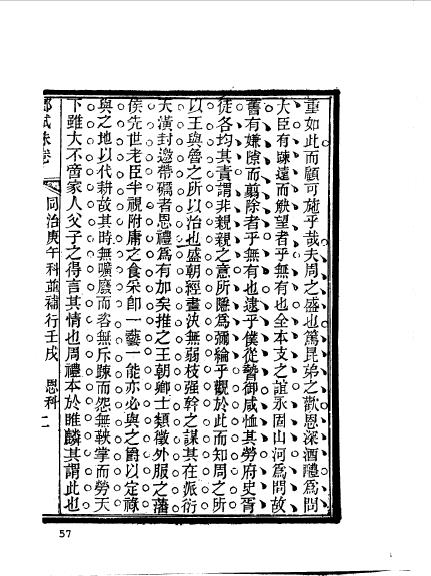 重如此而顧可施乎哉夫周之盛也篤昆弟之歡恩深酒禮爲問
大臣有疎遠而觖望者乎無有也全本支之誼永固山河爲問故
舊有嫌隙而翦除者乎無有也逮乎僕從暬御咸恤其勞府史胥
徒各均其責謂非親親之意所隱爲彌綸乎觀於此而知周之所
以王與魯之所以治也盛朝經畫決無弱枝强幹之謀其在派衍
天潢封邀帶礪者恩禮爲有加矣推之王朝卿士類徵外服之藩
侯先世老臣半視附庸之食采卽一藝一能亦必與之爵以定祿
與之地以代耕故其時無曠廢而咨無斥疎而怨無鞅掌而勞天
下雖大不啻家人父子之得言其情也周禮本於雎麟其謂此也
鄉試硃卷
同治庚午科並補行壬戌 恩科 二
57